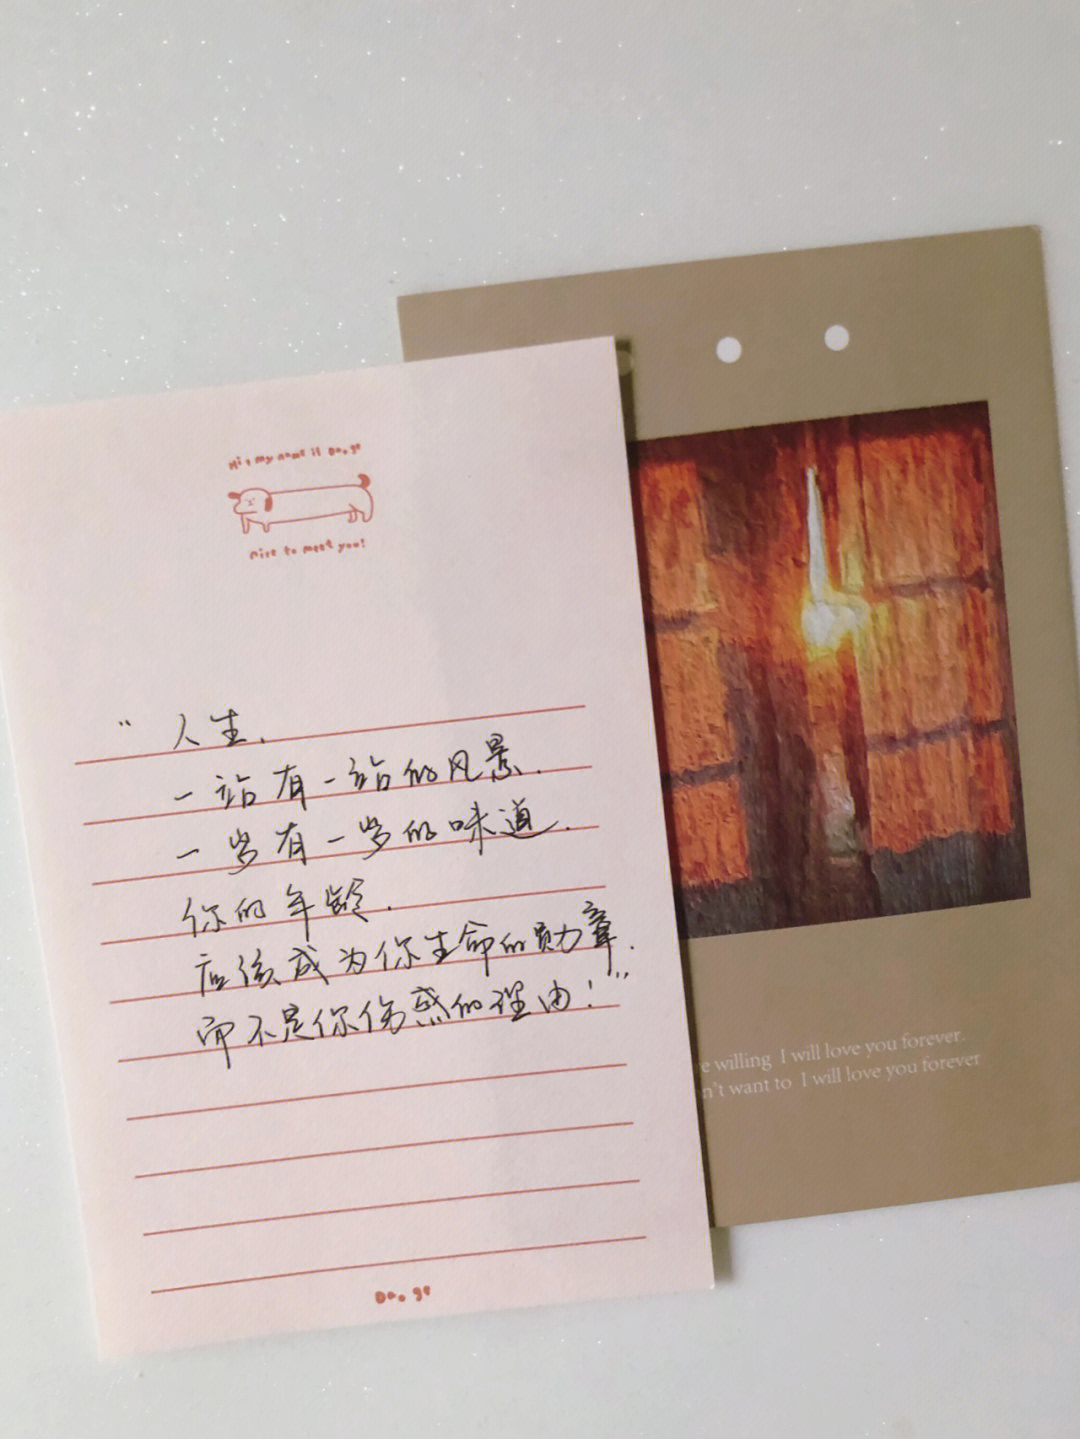 Hi, my name is Da.ge
nice to meet you!
“ 人生.
一站有一站的风景.
一岁有一岁的味道.
你的年龄.
应该成为你生命的勋章.
而不是你伤感的理由!”
Da.ge
willing I will love you forever.
want to I will love you forever